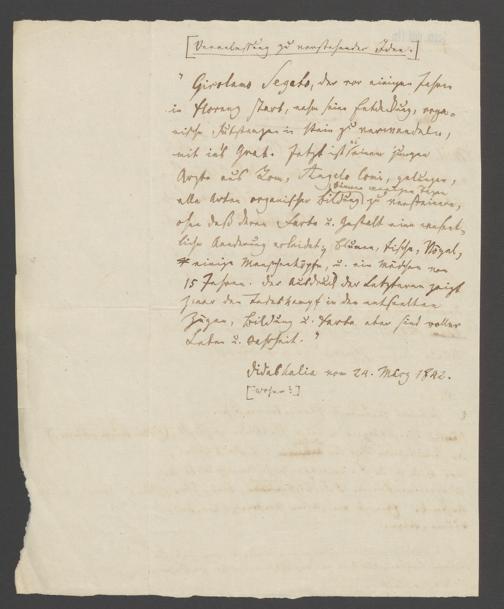 [Veranlassung zu vorstehender Idee.]
" Girolamo Segato, der vor einigen Jahren
in Florenz starb, nahm seine Entdeckung, orga-
nische Substanzen in Stein zu verwandeln,
mit in's Grab. Jetzt ist es einem jungen
Arzte aus Rom, Angelo Comi, gelungen,
binnen wenigen Tagen
alle Arten organischer Bildung zu versteinern,
ohne daß deren Farbe u. Gestalt eine wesent-
liche Aenderung erleidet; Blumen, Fische, Vögel,
* einige Menschenköpfe, u. ein Mädchen von
15 Jahren. Der Ausdruck der Letzteren zeigt
zwar den Todeskampf in den entseelten
Zügen, Bildung u. Farbe aber sind voller
Leben u. Wahrheit. "
Didaskalia vom 24. März 1842.
[woher?]